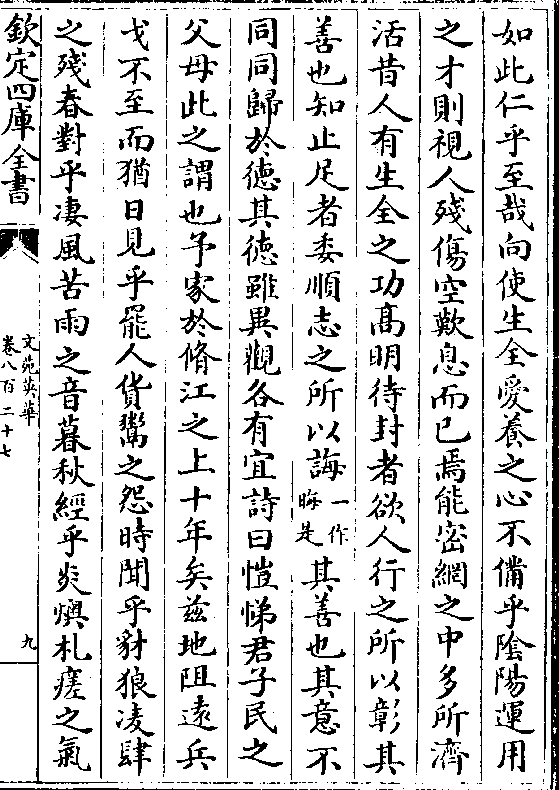 如此仁乎至哉向使生全愛養之心不備乎陰陽運用
之才則視人殘傷空歎息而已焉能密網之中多所濟
活昔人有生全之功髙明待封者欲人行之所以彰其
善也知止足者委順志之所以誨一作晦是其善也其意不
同同歸於徳其徳雖異觀各有宜詩曰愷悌君子民之
父母此之謂也予家於脩江之上十年矣兹地阻逺兵
戈不至而猶日見乎罷人貨鬻之怨時聞乎豺狼凌肆
之殘春對乎凄風苦雨之音暮秋經乎炎燠札瘥之氣
欽定四庫全書
文苑英華
卷八百二十七
九